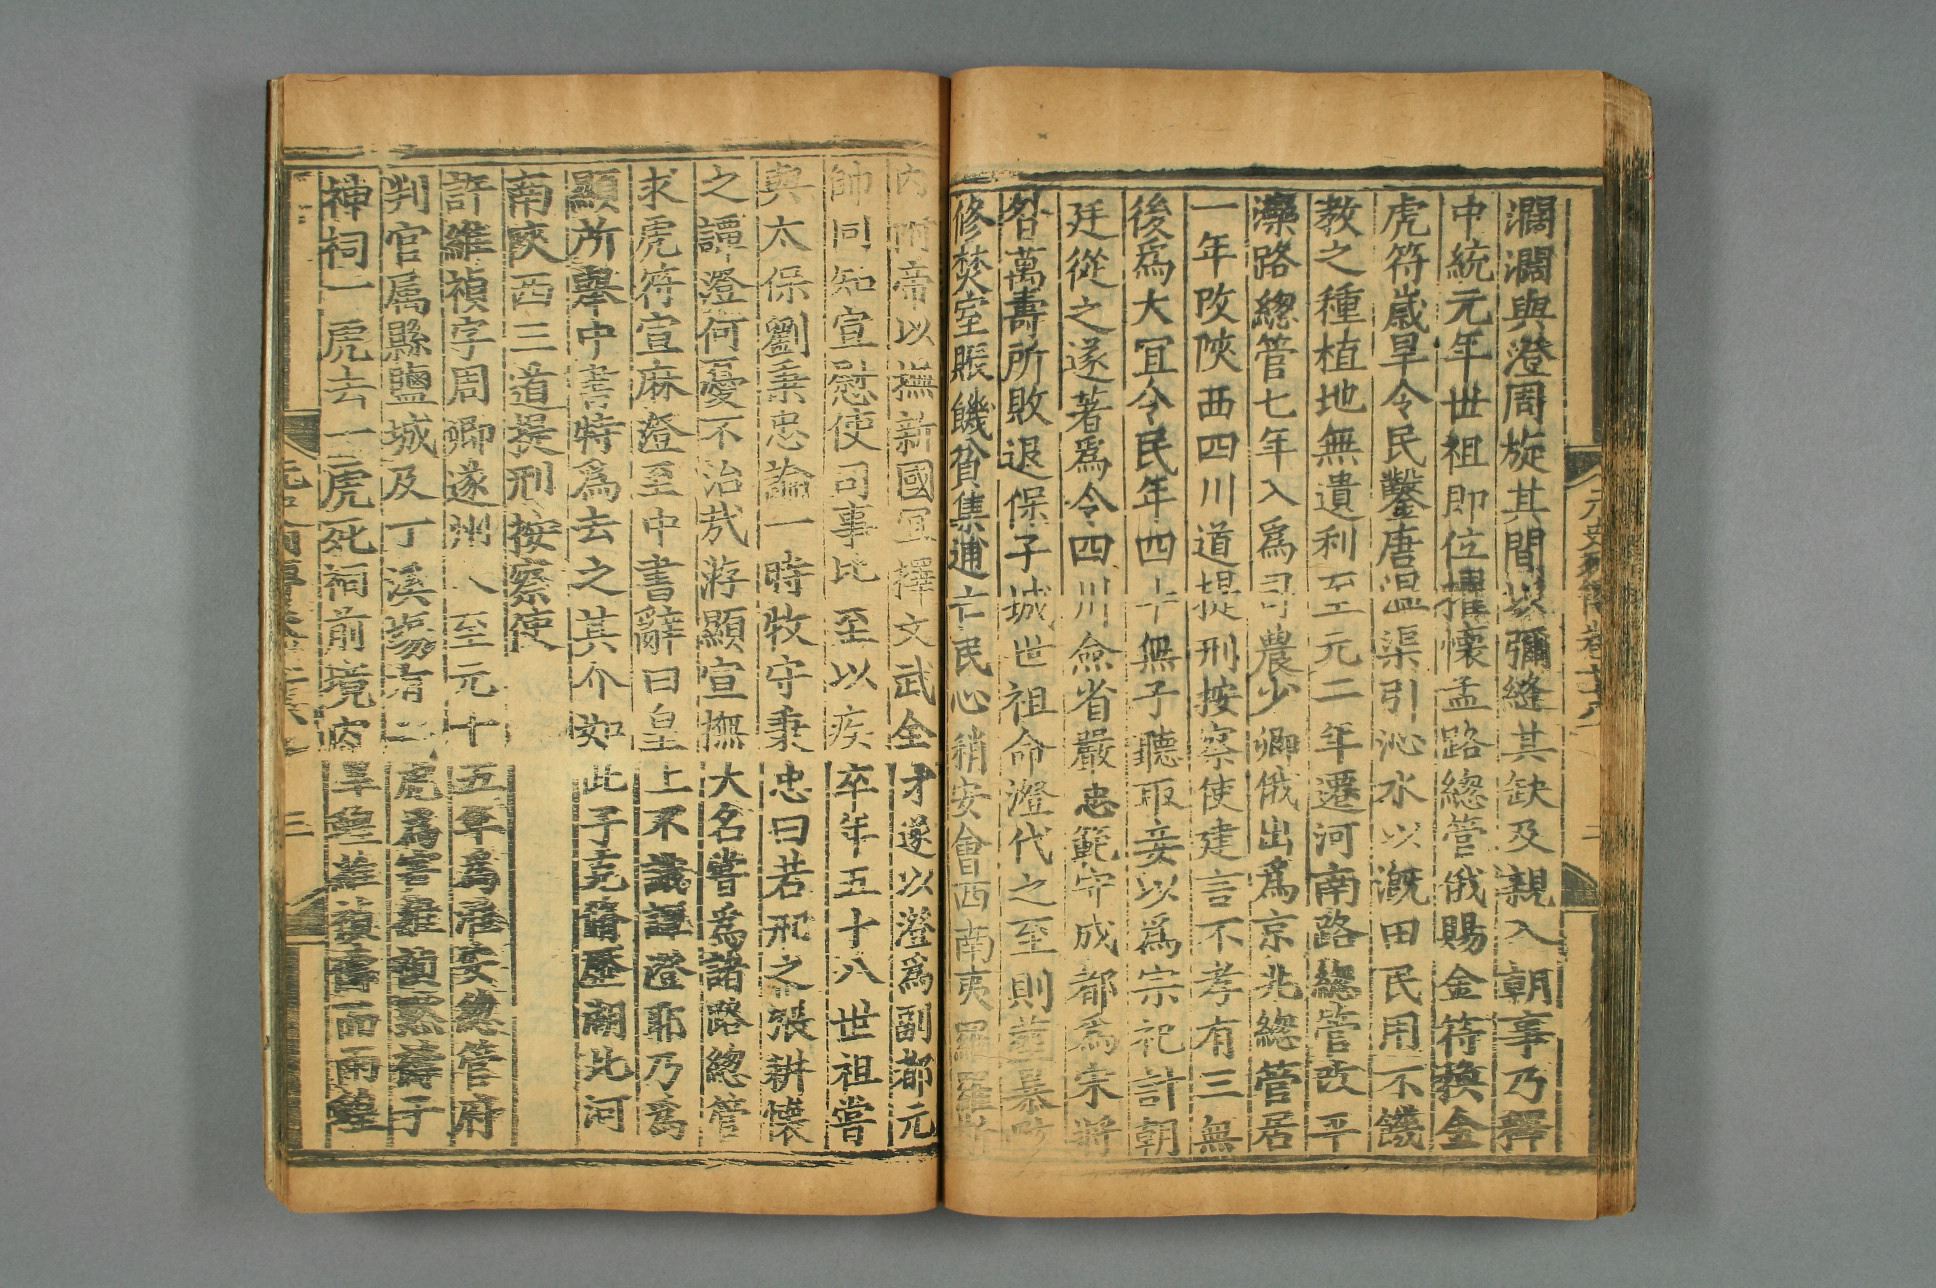 濶濶與澄周旋其間以彌縫其缺及親入朝事乃釋
中統元年世祖即位擢懷孟路總管俄賜金符換金
虎符歲旱令民鑿唐温渠引沁水以漑田民用不饑
教之種植地無遺利至元二年遷河南路總管改平
灤路總管七年入爲司農少卿俄出爲京兆總管居
一年改陝西四川道提刑按察使建言不孝有三無
後爲大宜令民年四十無子聽取妾以爲宗祀計朝
廷從之遂著爲令四川僉省嚴忠範守成都爲宋將
昝萬壽所敗退保子城世祖命澄代之至則葬暴骸
修焚室賑饑貧集逋亡民心稍安會西南夷羅羅斯
內附帝以撫新國宜擇文武全才遂以澄爲副都元
帥同知宣慰使司事比至以疾卒年五十八世祖嘗
與太保劉秉忠論一時牧守秉忠曰若邢之張耕懷
之譚澄何憂不治哉游顯宣撫大名嘗爲諸路總管
求虎符宣麻澄至中書辭曰皇上不識譚澄耶乃爲
顯所舉中書特爲去之其介如此子克脩歷湖北河
南陝西三道提刑按察使
許維禎字周卿遂州人至元十五年爲淮安總管府
判官屬縣鹽城及丁溪場有二虎爲害維禎默禱于
神祠一虎去一虎死祠前境內旱蝗維禎禱而雨蝗
三